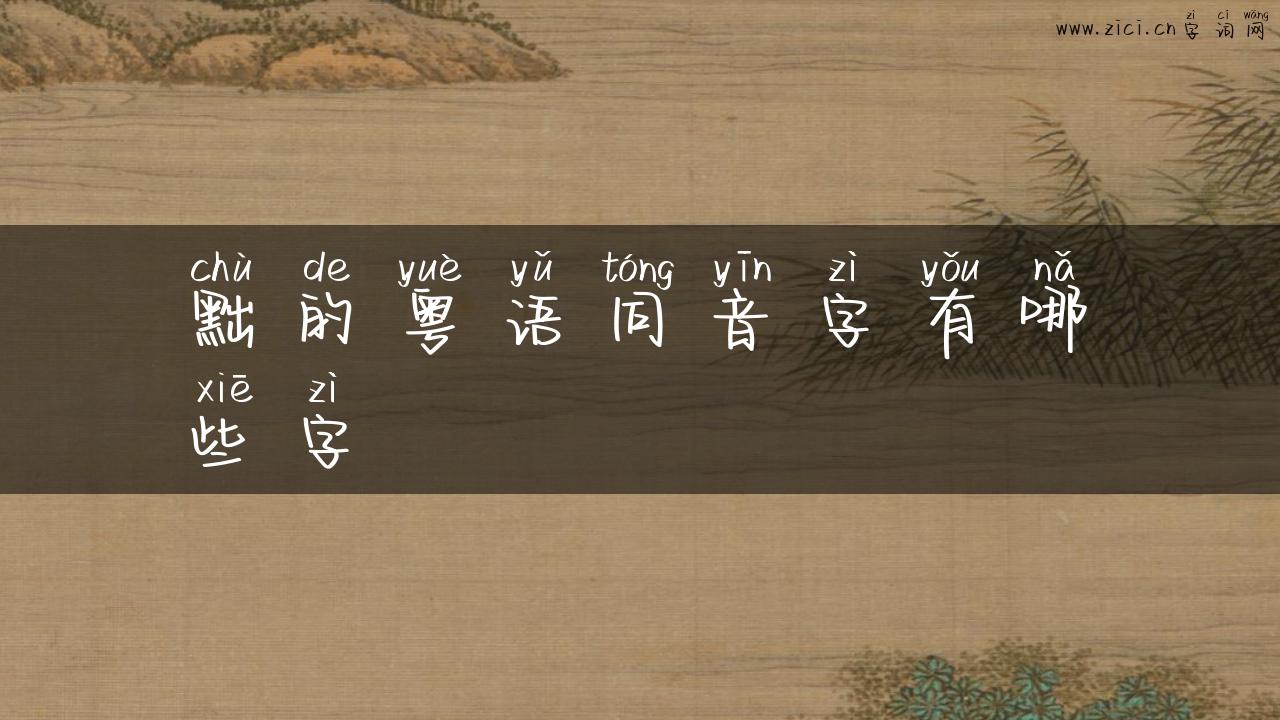 zì cí wǎng
www.zici.cn 字 词 网
chù de yuè yǔ tóng yīn zì yǒu nǎ
黜 的 粤 语 同 音 字 有 哪
xiē zì
些 字